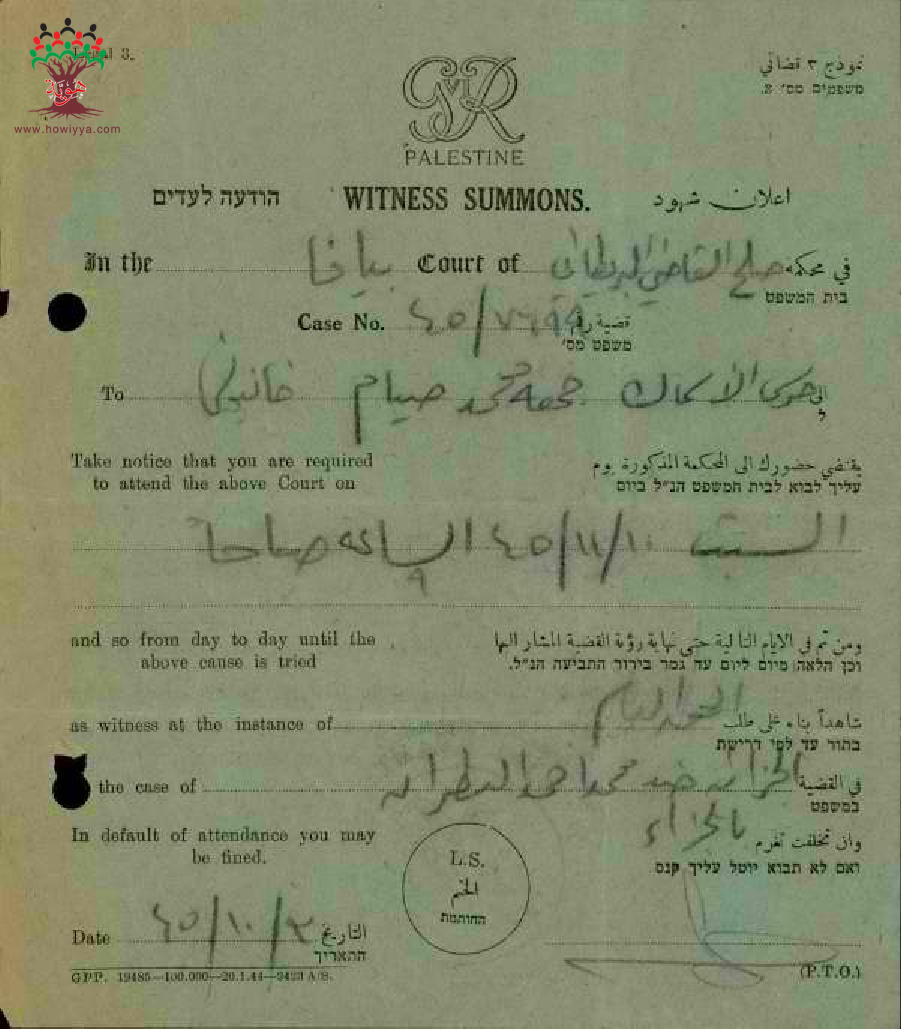 Legal 3.
هوية
www.howiyya.com
نموذج ٣ قضائي
משפטים מס׳ 3.
GVIR
PALESTINE
הודעה לעדים WITNESS SUMMONS. اعلان شهود
In the بيافا Court of صلح القاضي البريطاني في محكمة
בית המשפט
Case No. ٤٥/٧٦٩٩ قضية رقم
משפט מס׳
To جمعة محمد صيام الى
ל
Take notice that you are required يقتضي حضورك الى المحكمة المذكورة يوم
to attend the above Court on עליך לבוא לבית המשפט הנ״ל ביום
السبت ٤٥/١١/١٠ الساعة ٩ صباحاً
and so from day to day until the ومن ثم في الايام التالية حتى نهاية رؤية القضية المشار اليها
above cause is tried וכן הלאה מיום ליום עד גמר בירור התביעה הנ״ל.
as witness at the instance of شاهداً بناء على طلب
בתור עד לפי דרישת
the case of ضد محمد احمد في القضية
במשפט
In default of attendance you may وان تخلفت تغرم بالجزاء
be fined. ואם לא תבוא יוטל עליך קנס.
L.S.
الختم
החותמת
Date ٤٥/١٠/٣ التاريخ
התאריך
GPP. 19485—100.000—20.1.44—9423 A/S.
(P.T.O.)